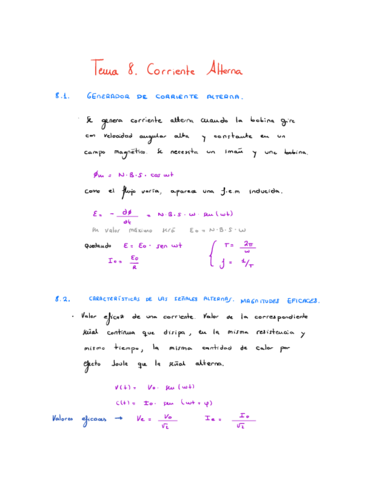 Tema 8. Corriente Alterna
8.1. GENERADOR DE CORRIENTE ALTERNA.
Se genera corriente alterna cuando la bobina gira
con velocidad angular alta y constante en un
campo magnético. Se necesita un imán y una bobina.
Φm = N·B·S·cos ωt
Como el flujo varía, aparece una f.e.m inducida.
E = - dΦ/dt = N·B·S·ω·sen(ωt)
Su valor máximo será E₀ = N·B·S·ω
Quedando E = E₀·sen ωt
I₀ = E₀/R
T = 2π/ω
f = 1/T
8.2. CARACTERÍSTICAS DE LAS SEÑALES ALTERNAS. MAGNITUDES EFICACES.
· Valor eficaz de una corriente. Valor de la correspondiente
señal continua que disipa, en la misma resistencia y
mismo tiempo, la misma cantidad de calor por
efecto Joule que la señal alterna.
V(t) = V₀·sen(ωt)
i(t) = I₀·sen(ωt + φ)
Valores eficaces → Ve = V₀/√2 Ie = I₀/√2